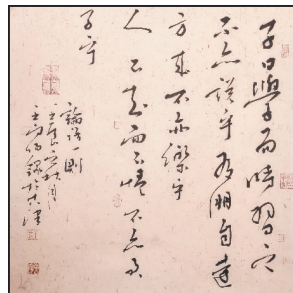 子曰學而時習之
不亦說乎有朋自遠
方來不亦樂乎
人不知而不慍不亦君
子乎
論語一則
秋月
錄於天津